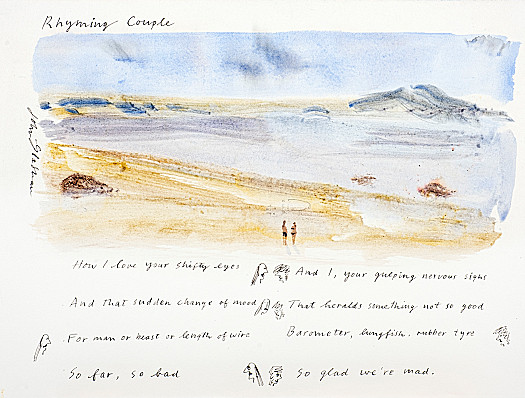 Rhyming Couple
John Glashan
How I love your shifty eyes
And I, your gulping nervous sighs
And that sudden change of mood
That heralds something not so good
For man or beast or length of wire
Barometer, lungfish. rubber tyre
So far, so bad
So glad we're mad.